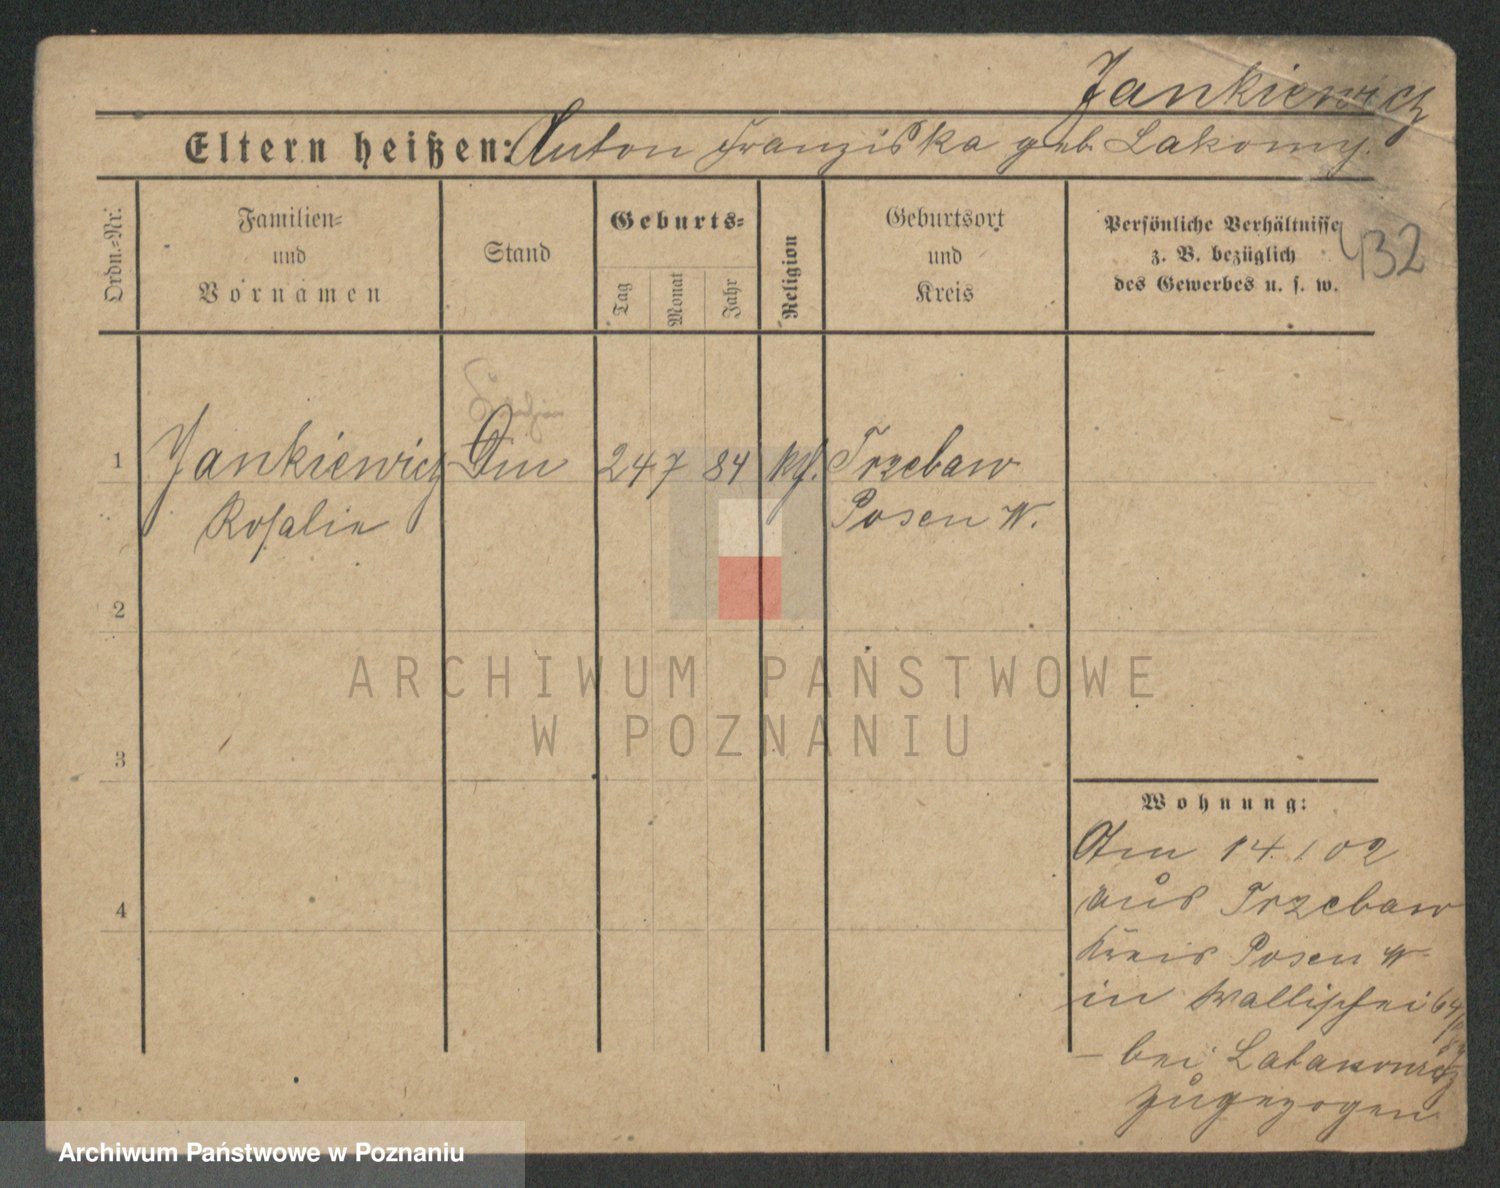 Jankiewicz
Eltern heißen: Anton Franziska geb. Lakomy.
Ordn.=Nr.
Familien=
und
Vornamen
Stand
Geburts=
Tag
Monat
Jahr
Religion
Geburtsort
und
Kreis
Persönliche Verhältnisse
z. B. bezüglich
des Gewerbes u. s. w.
432
1 Jankiewicz Din 24 7 84 kth. Trzebaw
Rosalie Posen W.
2
3
4
Wohnung:
Am 14 1 02
aus Trzebaw
Kreis Posen W
in Wallischei 64/65
– bei
zugezogen
ARCHIWUM PAŃSTWOWE
W POZNANIU
Archiwum Państwowe w Poznaniu